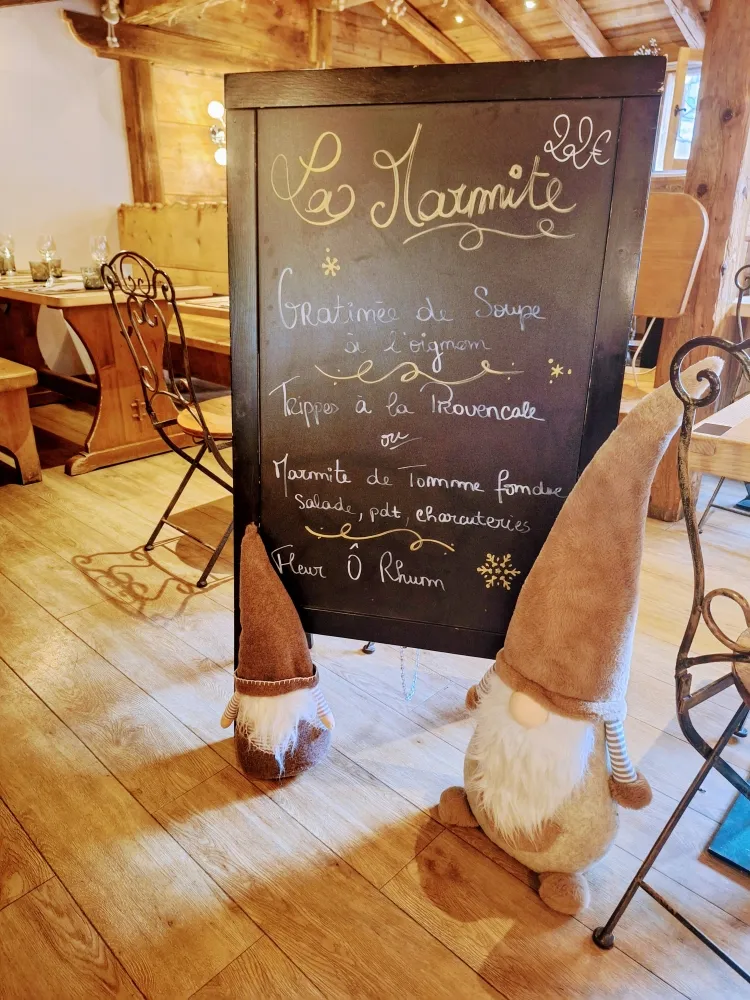 22€
La Marmite
Gratinée de Soupe
à l'oignon
Trippes à la Provencale
ou
Marmite de Tomme fondue
Salade, pdt, charcuteries
Fleur Ô Rhum